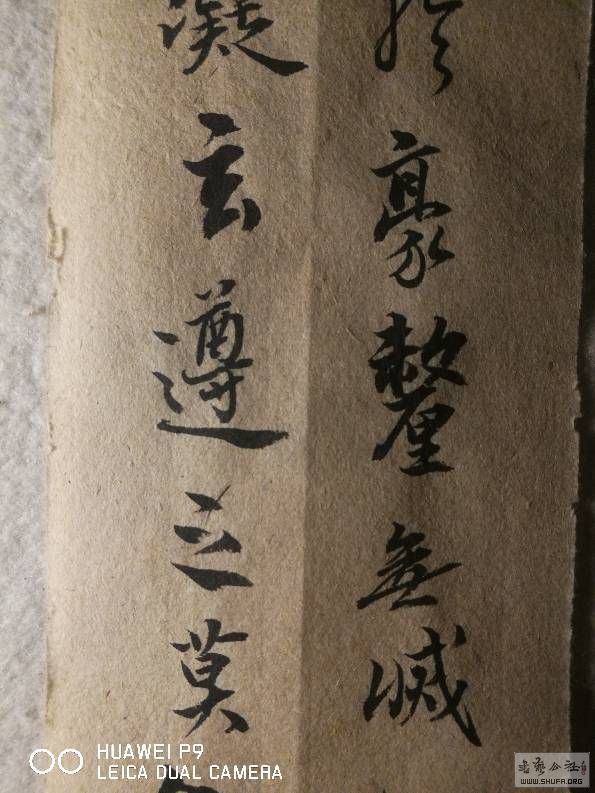 於豪釐無滅
凝玄遵之莫
HUAWEI P9
LEICA DUAL CAMERA
书艺公社
WWW.SHUFA.ORG